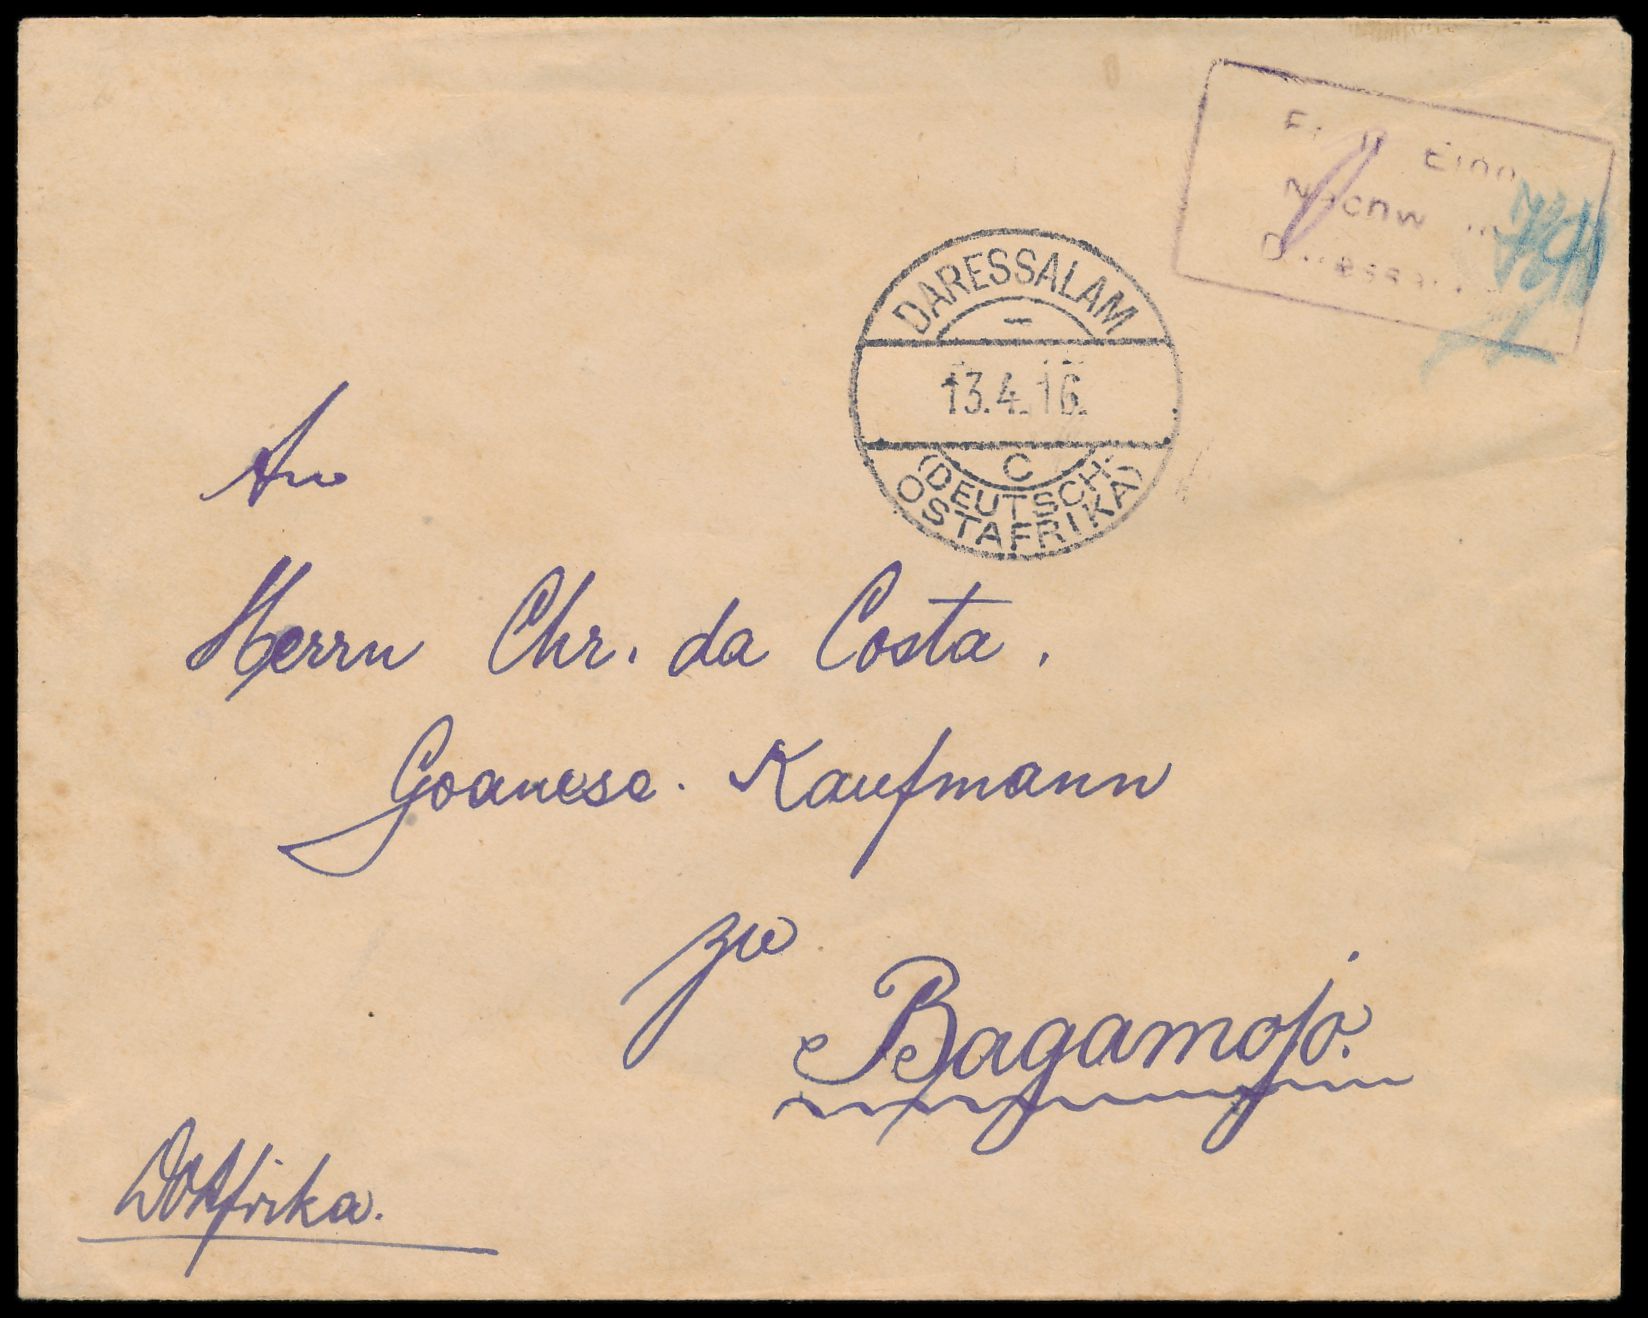 DARESSALAM
13.4.16.
C
(DEUTSCH-
OSTAFRIKA)
An
Herrn Chr. da Costa.
Goanese. Kaufmann
zu
Bagamojo.
DOAfrika.